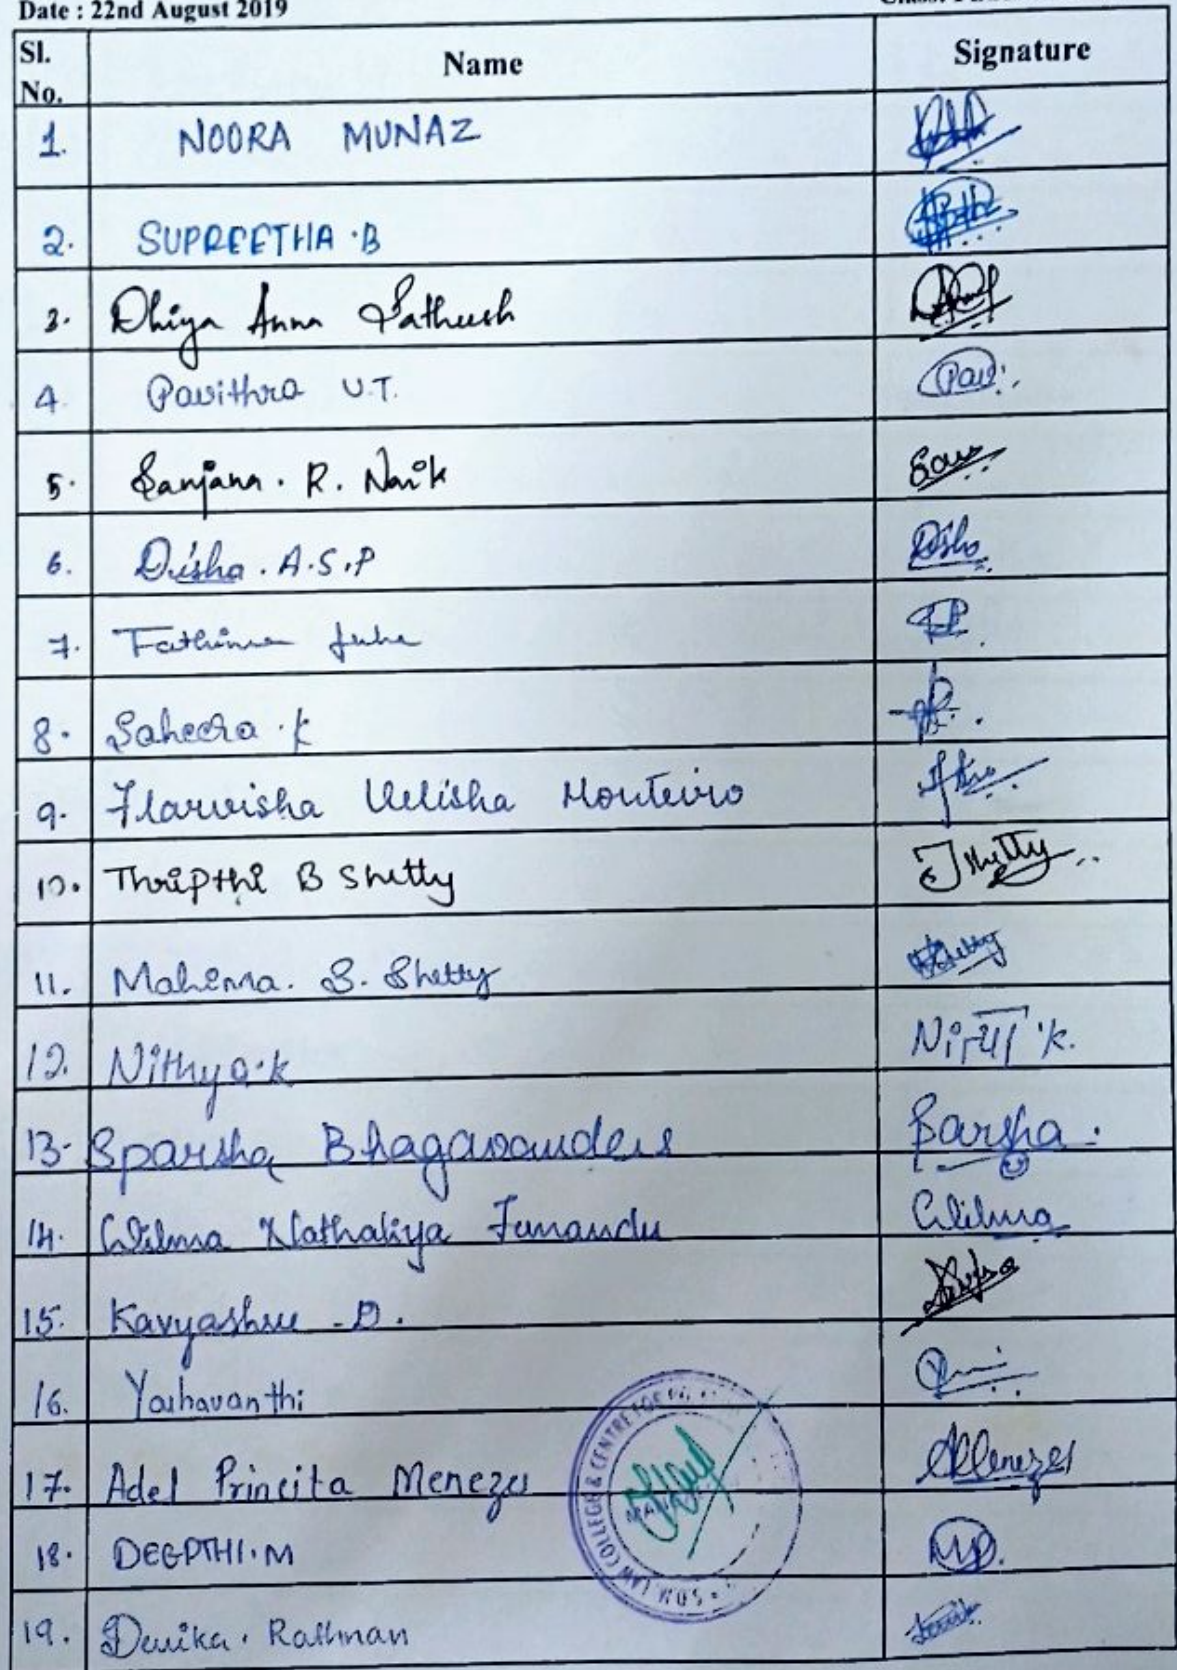 Date : 22nd August 2019
Sl. No. Name Signature
1. NOORA MUNAZ
2. SUPREETHA .B
3. Dhiya Anna Sathush
4. Pavithra U.T. Pavi
5. Sanjana. R. Naik
6. Disha. A.S.P Disha
7. Fathima Juha
8. Saheera .K
9. Flarvisha Velisha Monteiro
10. Thripthi B Shetty TShetty
11. Mahima. S. Shetty Shetty
12. Nithya.k
13. Sparsha Bhagavandass
14. Wilma Nathaliya Fernandes Wilma
15. Kavyashree .D.
16. Yashavanthi
17. Adel Princita Menezes AMenezes
S.D.M. LAW COLLEGE & CENTRE FOR
18. DEEPTHI.M
19. Devika. Rathnan